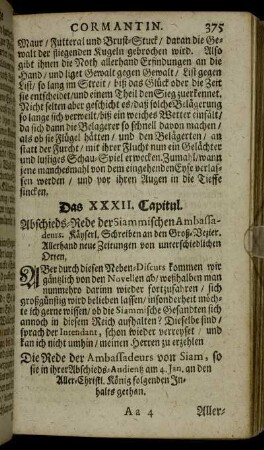 CORMANTIN. 375
Maur / Futteral und Brust-Stuck / daran die Ge-
walt der fliegenden Kugeln gebrochen wird. Also
gibt ihnen die Noth allerhand Erfindungen an die
Hand / und liget Gewalt gegen Gewalt / List gegen
List / so lang im Streit / biß das Glück oder die Zeit
es entscheidet / und einem Theil den Sieg zuerkennet.
Nicht selten aber geschicht es / daß solche Belägerung
so lange sich verweilt / biß ein weiches Wetter einfält /
da sich dann die Belägerer so schnell davon machen /
als ob sie Flügel hätten / und den Belägerten / an
statt der Furcht / mit ihrer Flucht nun ein Gelächter
und lustiges Schau-Spiel erwecken. Zumahl / wann
jene manchesmahl von dem eingehenden Eyse verlas-
sen werden / und vor ihren Augen in die Tieffe
sincken.
Das XXXII. Capitul.
Abschieds-Rede der Siammischen Ambassa-
deurs. Käyserl. Schreiben an den Groß-Vezier.
Allerhand neue Zeitungen von unterschiedlichen
Orten.
ABer durch diesen Neben-Discurs kommen wir
gäntzlich von den Novellen ab / weßhalben man
nunmehro darinn wieder fortzufahren / sich
großgünstig wird belieben lassen / insonderheit möch-
te ich gerne wissen / ob die Siammische Gesandten sich
annoch in diesem Reich aufhalten? Dieselbe sind /
sprach der Intendant, schon wieder verreyset / und
kan ich nicht umhin / meinen Herren zu erzehlen
Die Rede der Ambassadeurs von Siam, so
sie in ihrer Abschieds-Audientz am 4. Jan. an den
Aller-Christl. König folgenden In-
halts gethan.
Aa 4 Aller-